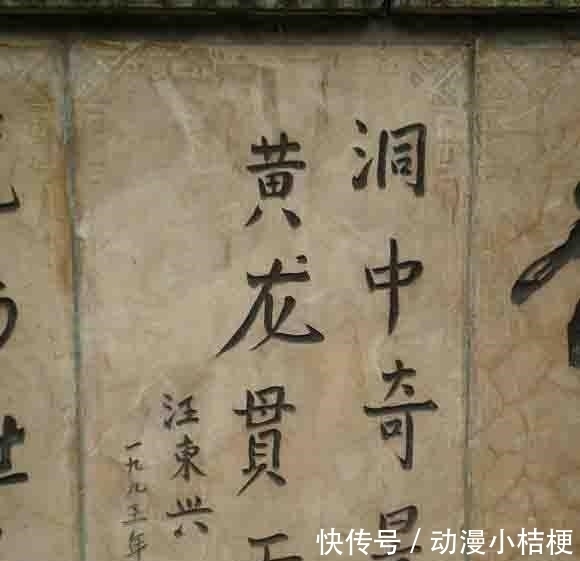 洞中奇景
黄龙貫
汪東兴
一九九五年
快传号 / 动漫小桔梗